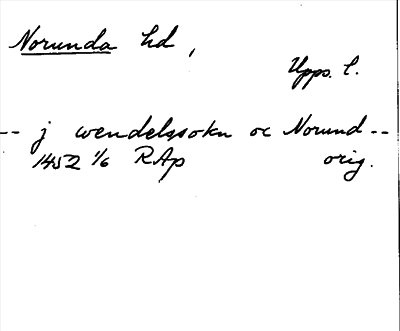 Norunda hd,
Upps. l.
-- j wendelssokn oc Norund --
1452 1/6 RAp orig.